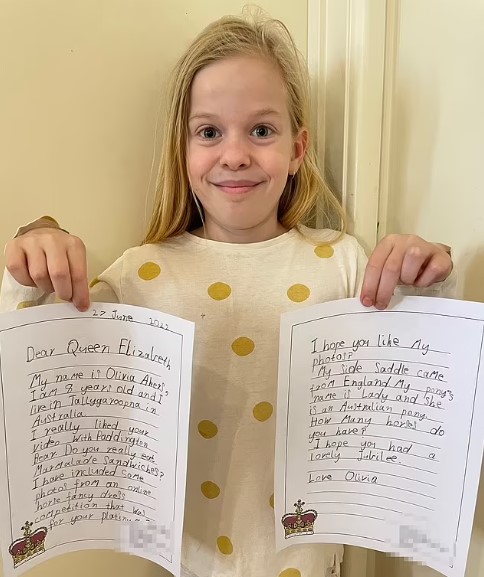 27 June 2022
Dear Queen Elizabeth
My name is Olivia Akers
I am 8 years old and I
live in Tallygaroopna in
Australia
I really liked your
video with Paddington
Bear. Do you really eat
Marmalade Sandwiches?
I have included some
photos from an online
horse fancy dress
competition that was
for your platinum
I hope you like My
photos?
My side Saddle came
from England My pony's
name is Lady and she
is an Australian pony.
How Many horses do
you have?
I hope you had a
lovely Jubilee
Love Olivia